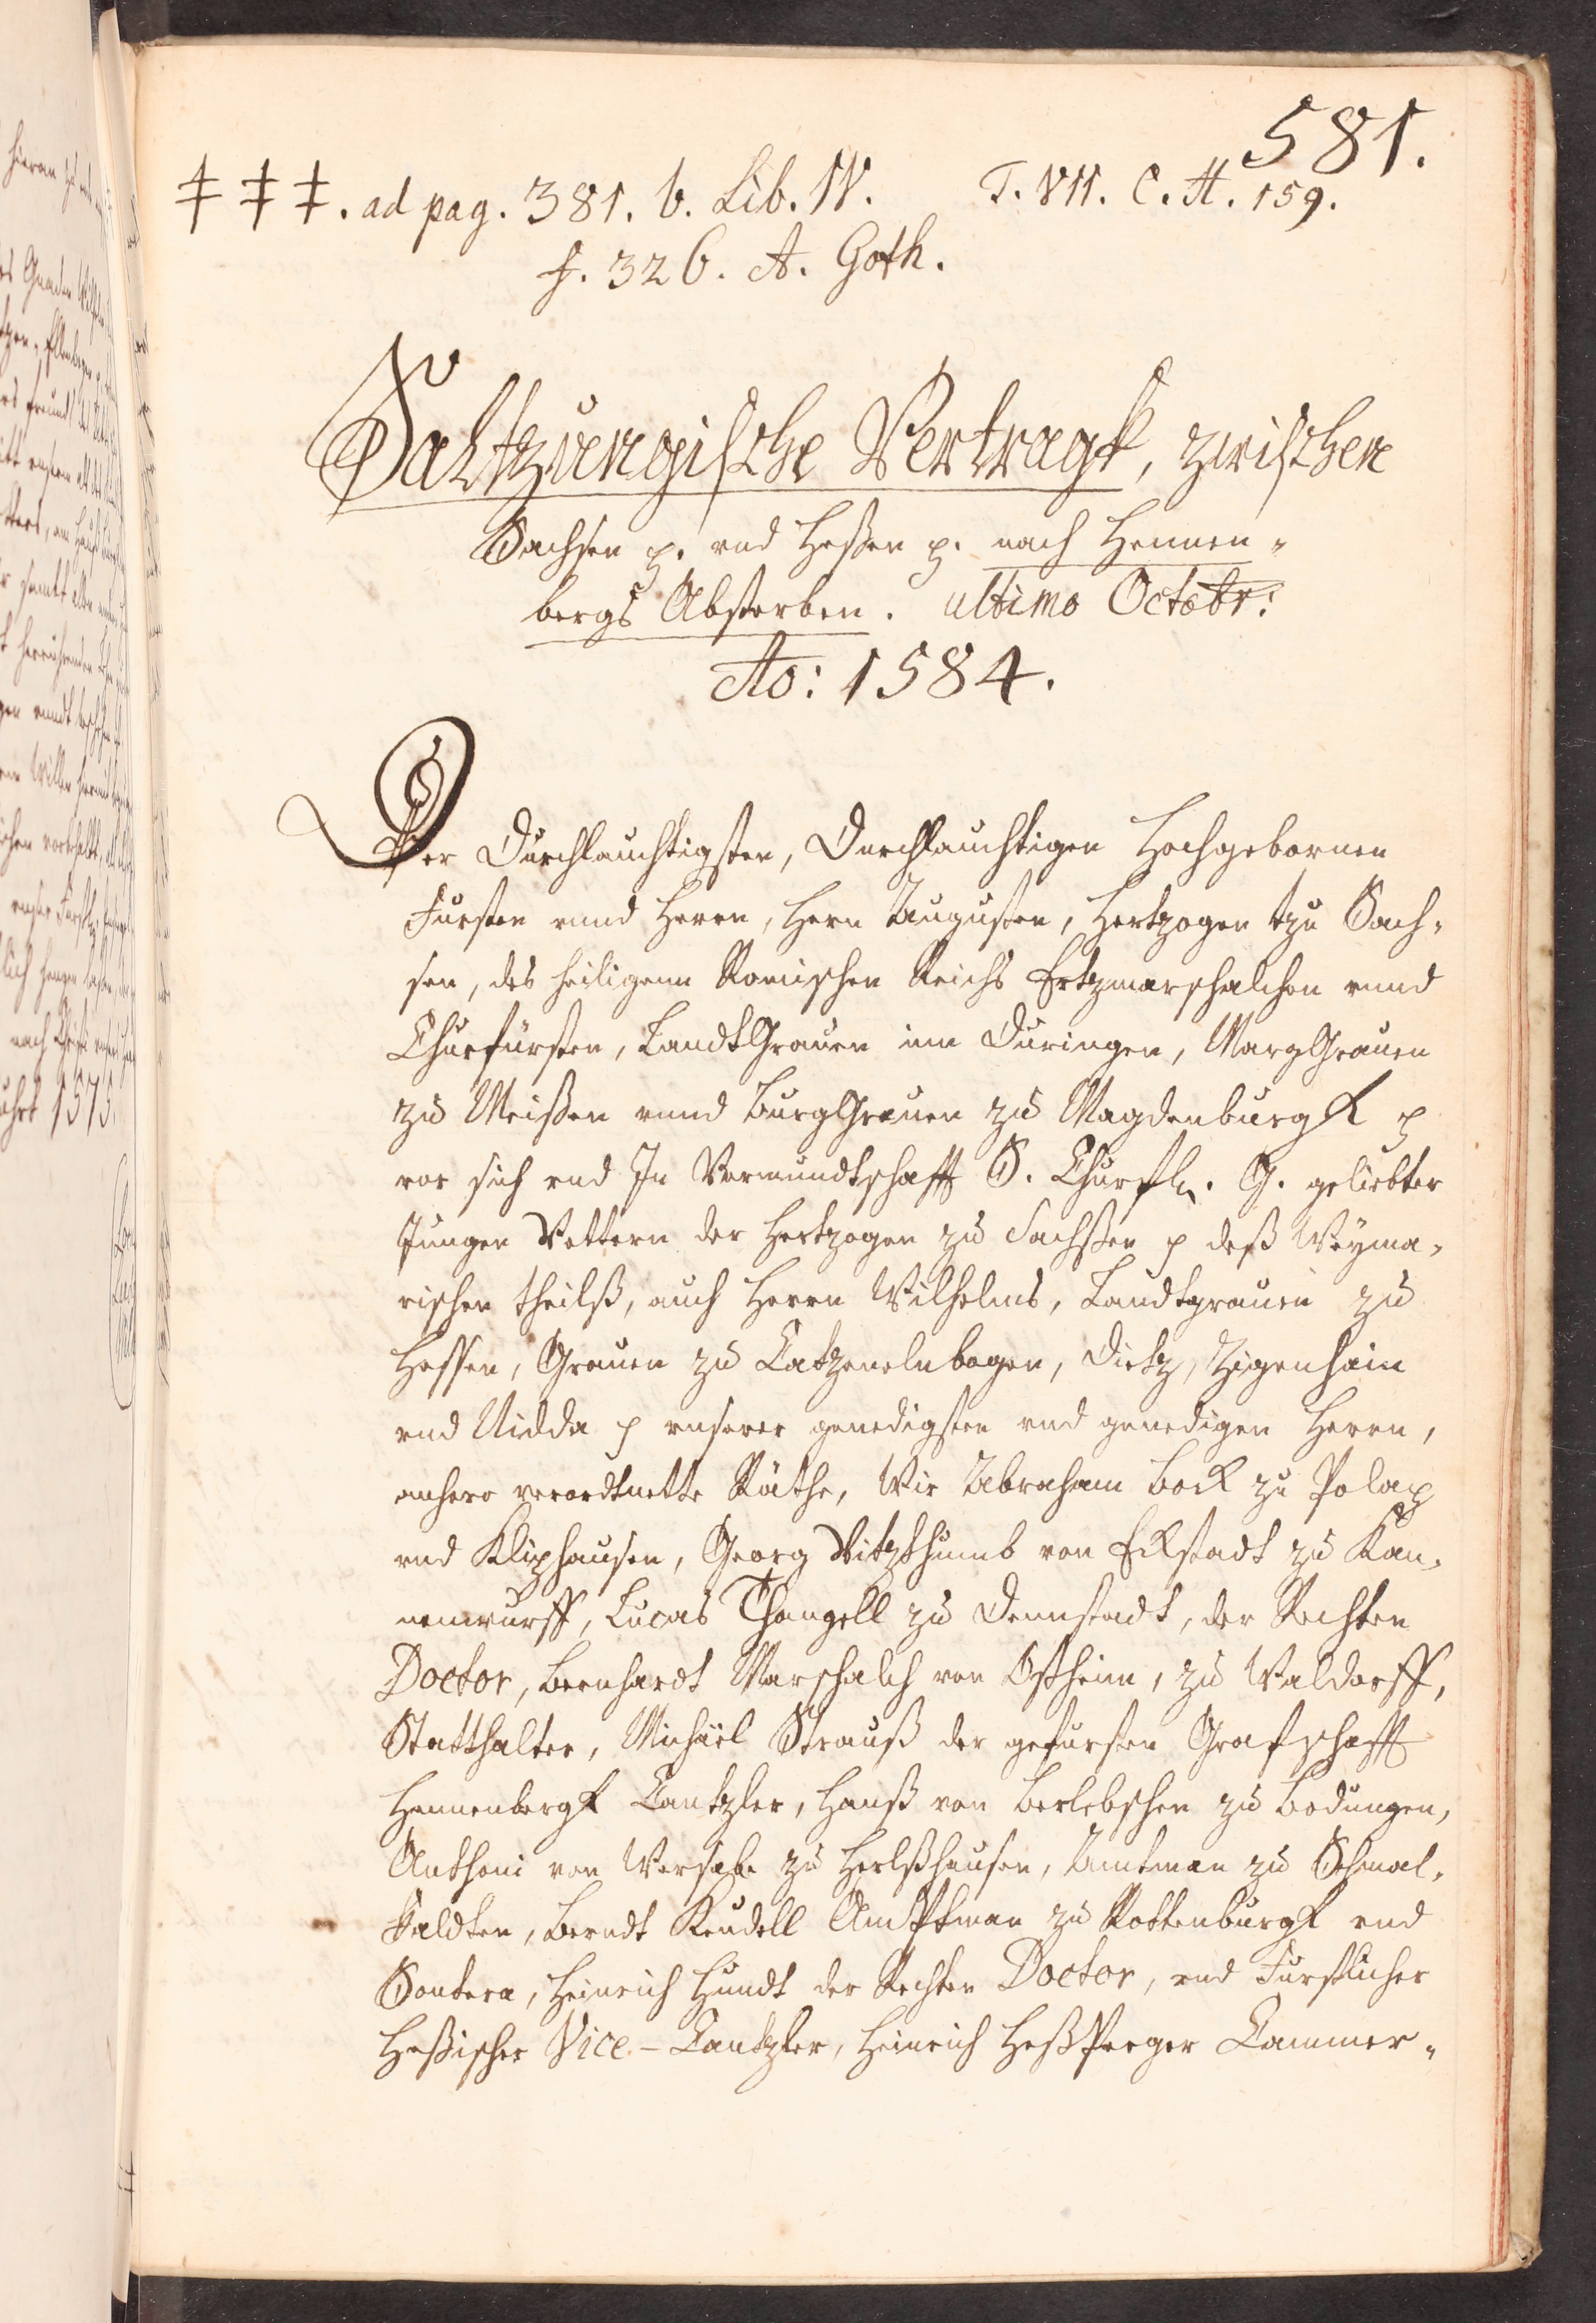 581.
‡ ‡ ‡. ad pag. 381. b. Lib. IV. T. VII. C. H. 159.
f. 326. A. Goth.
Saltzungische Vertragk, zwischen
Sachsen p. vnd Heßen p. nach Hennen-
bergs Absterben. ultimo Octobr:
Ao: 1584.
Der Durchlauchtigsten, Durchlauchtigen Hochgebornen
Fursten vnnd Herrn, Hern Augusten, Hertzogen tzu Sach-
sen, des heiligenn Romischen Reichs Ertzmarschalchen vnnd
Churfürsten, LandtGrauen inn Duringen, MargGrauen
zu Meißen vnnd BurgGrauen zu Magdenburgk p
vor sich vnd In Vormundtschafft S. Churfl. G. geliebter
Jungen Vettern der Hertzogen zu Sachßen p deß Weyma-
rischen theilß, auch Herrn Wilhelms, Landtgrauen zu
Hessen, Grauen zu Catzenelnbogen, Dietz, Zigenhain
vnd Nidda p vnserer genedigsten vnd genedigen Herrn,
anhero verordtnette Räthe, Wir Abraham Bock zu Polap
vnd Kliphausen, Georg Vitzthumb von Eckstadt zu Kan-
nenwurff, Lucas Thangell zu Dennstadt, der Rechten
Doctor, Bernhardt Marschalch von Ostheim, zu Waldorff,
Statthalter, Michäel Strauß der gefursten Grafschafft
Hennenbergk Cantzler, Hanß von Berlebschen zu Bodungen,
Anthoni von Wersabe zu Herlßhausen, Amtman zu Schmal-
kaldten, Berndt Keudell Amptman zu Rottenburgk vnd
Sontera, Heinrich Hundt der Rechten Doctor, vnd Furstlicher
Heßischer Vice-Cantzler, Heinrich Heßperger Cammer-